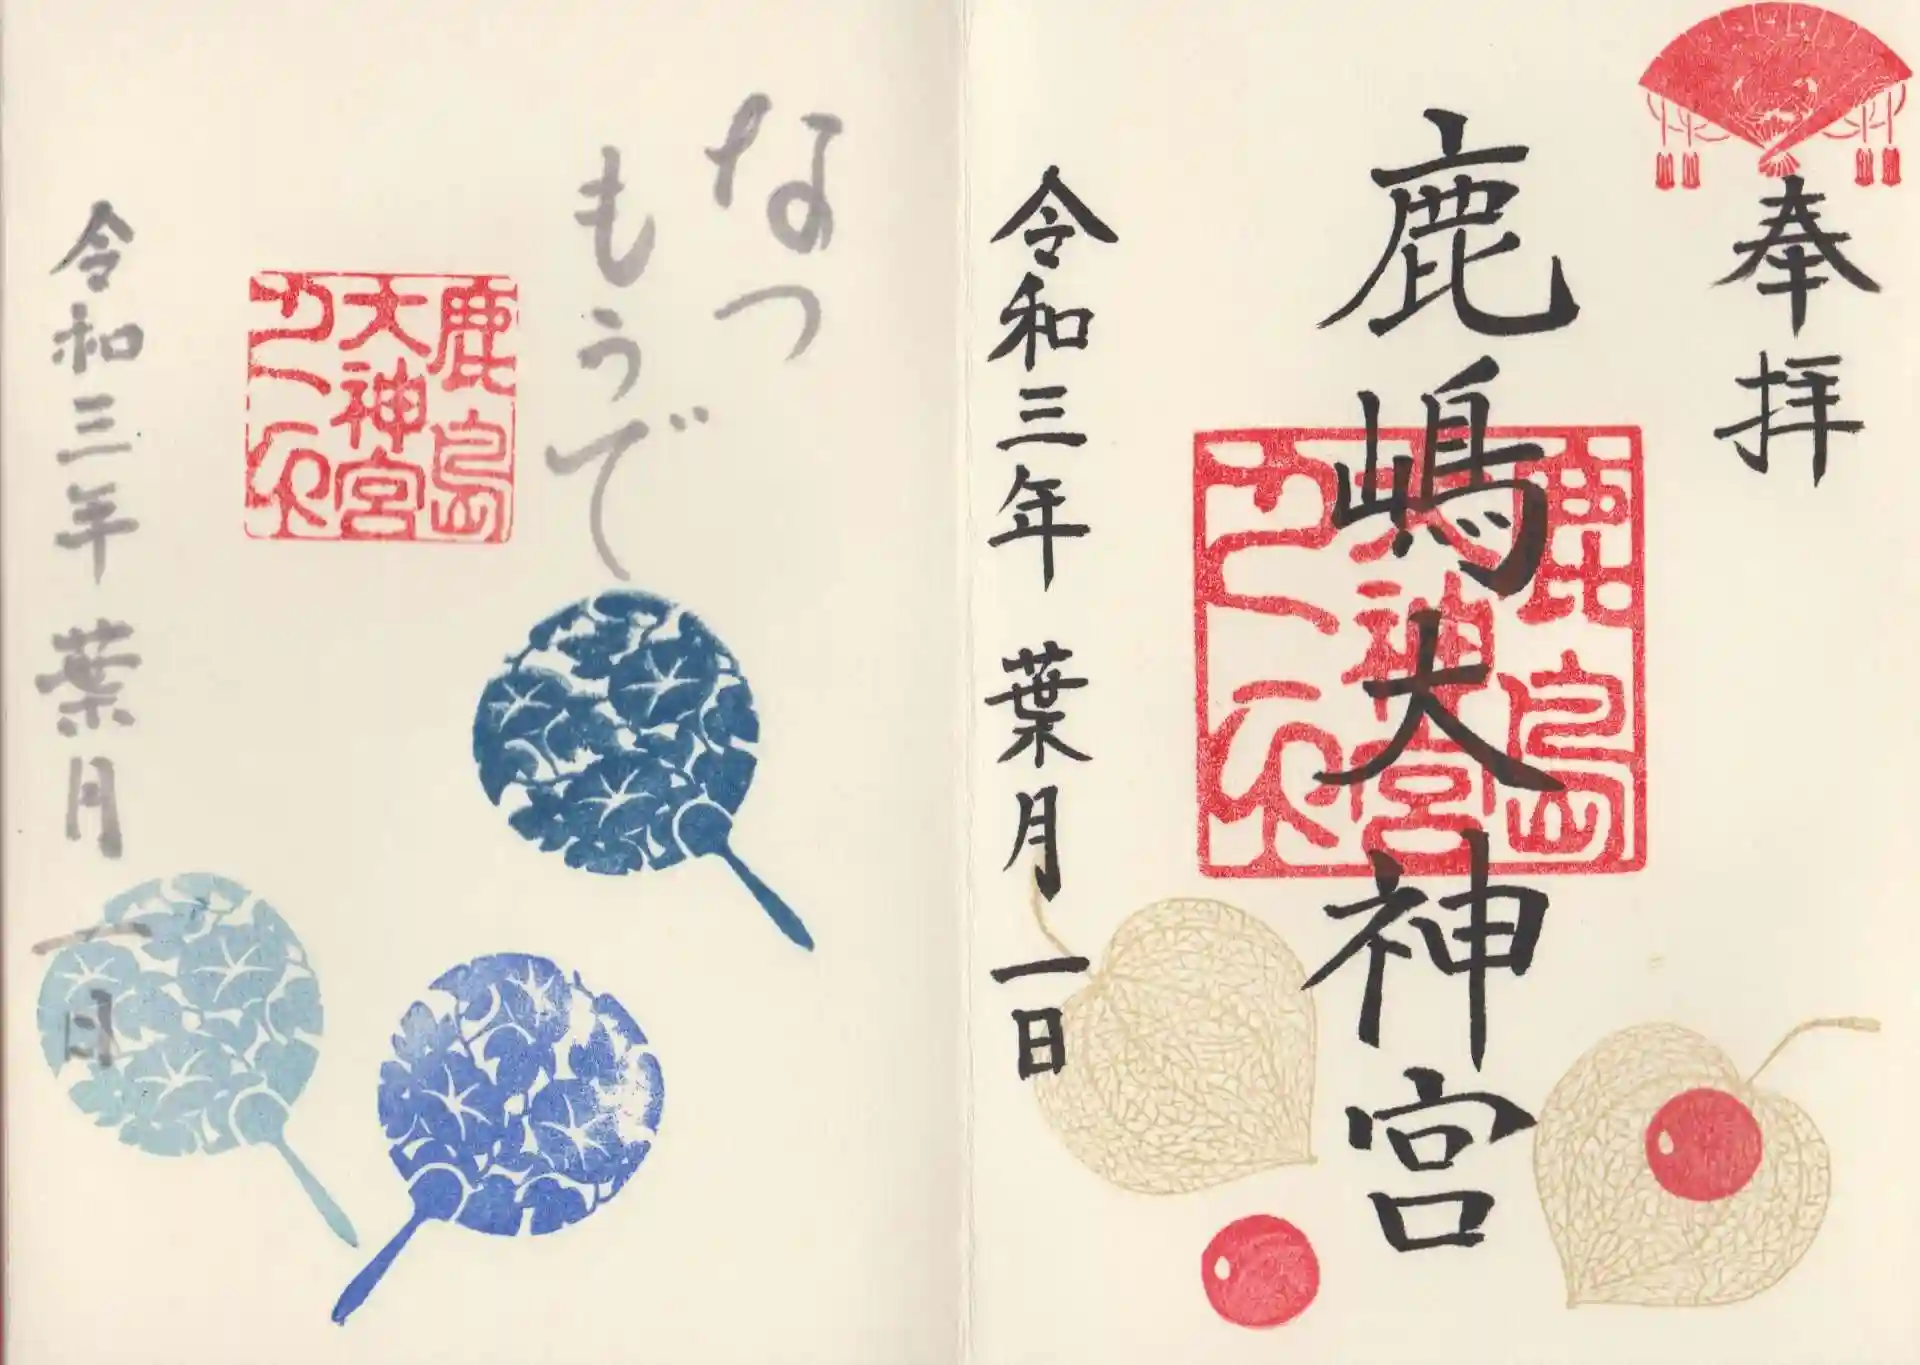 奉拝
鹿嶋大神宮
鹿島
大神宮
令和三年 葉月 一日
なつ
もうで
鹿島
大神宮
令和三年 葉月 一日